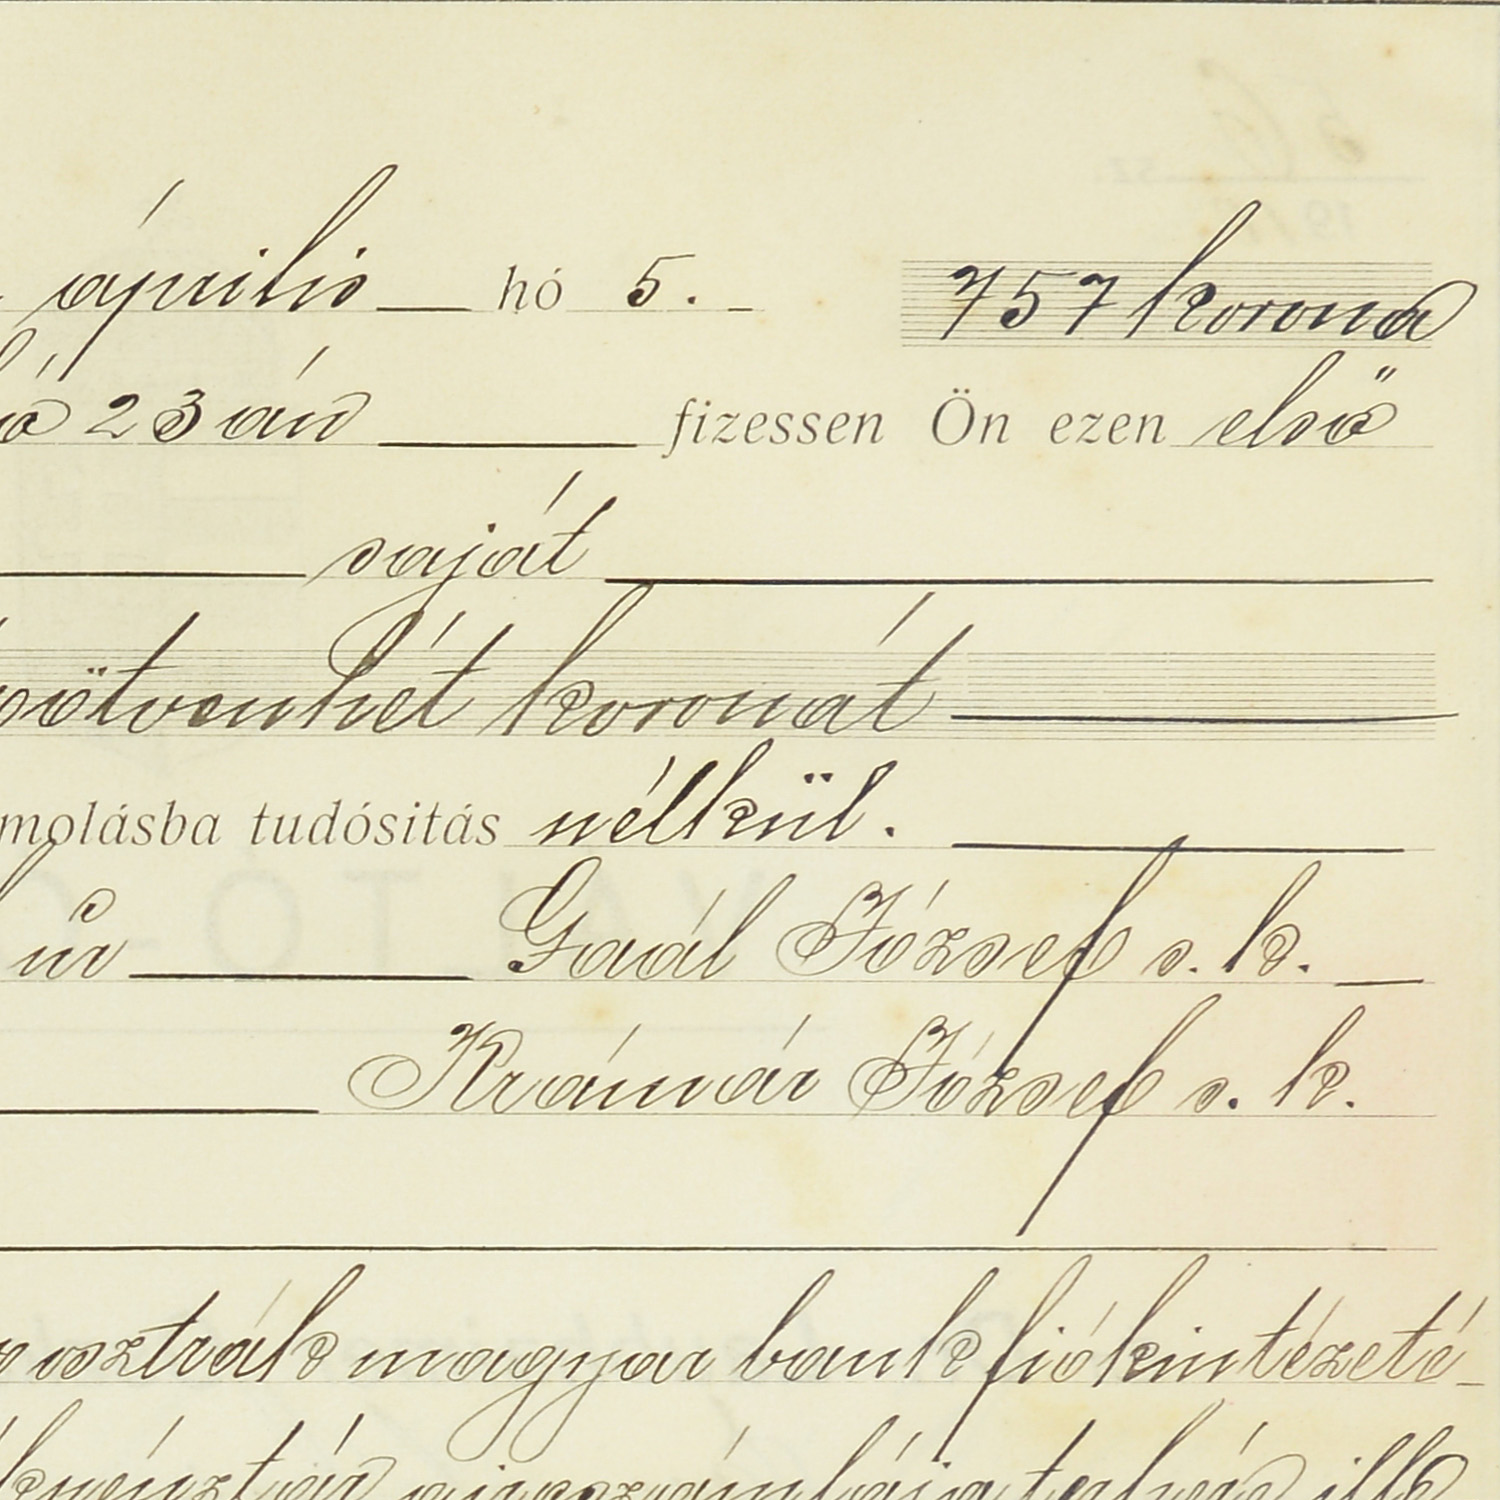 április hó 5. 757 korona
23án fizessen Ön ezen első
saját
ötvenhét koronát
molásba tudósitás nélkül.
úr Gaál József s. k.
Krámár József s. k.
osztrák magyar bank fiókintézeté-